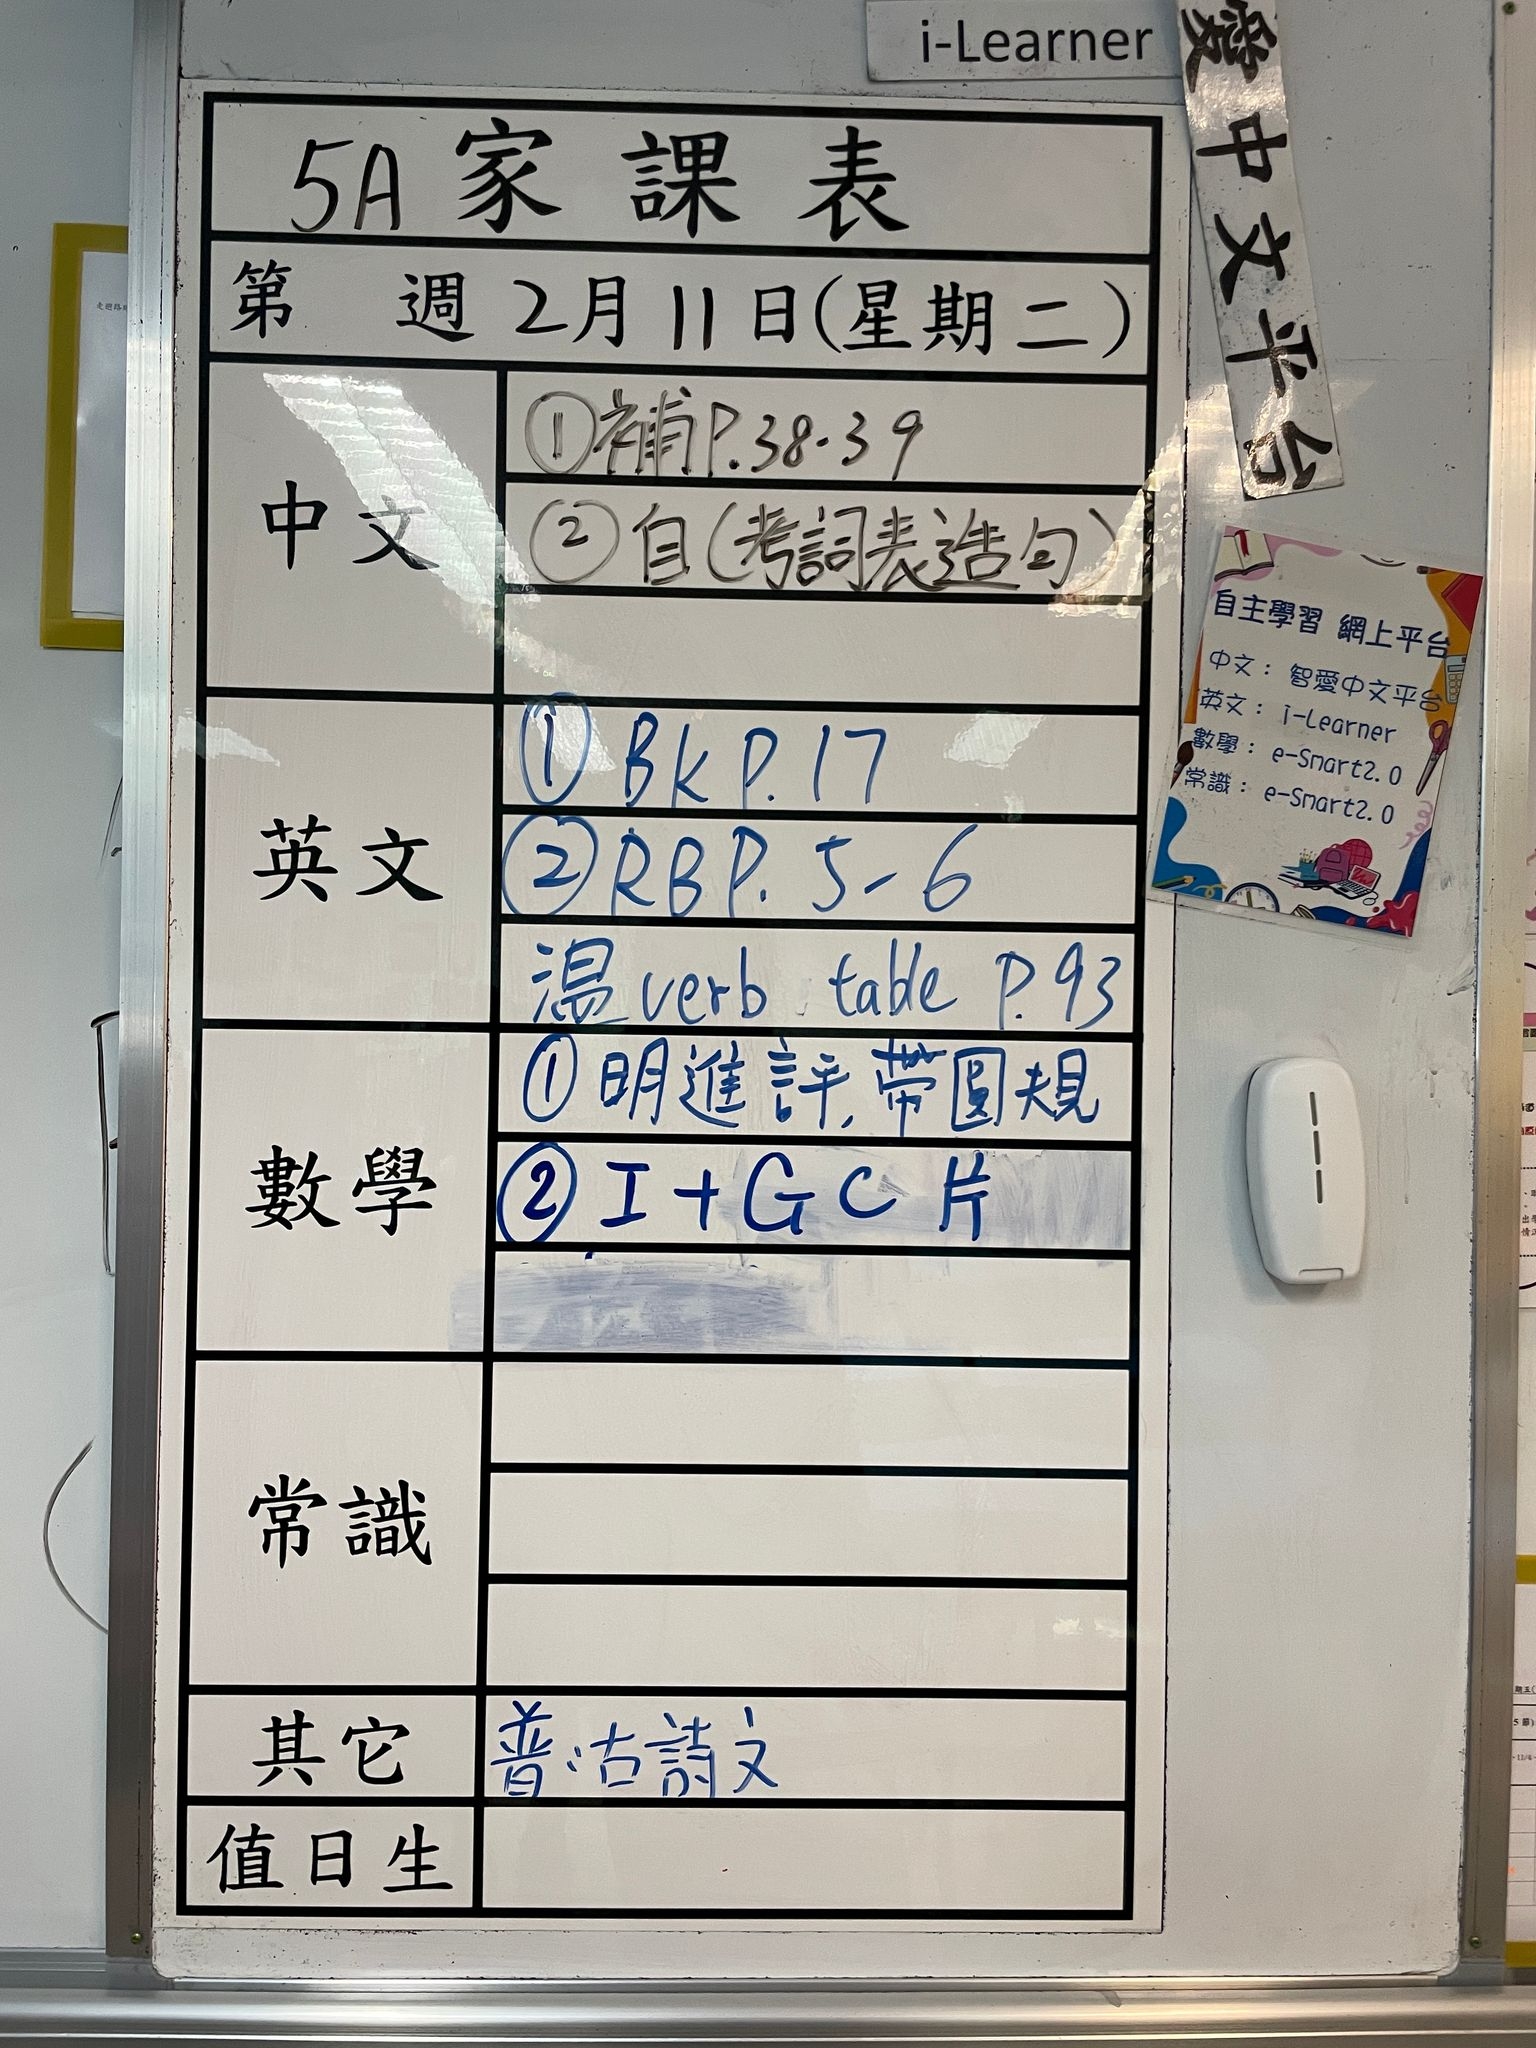 i-Learner
愛中文平台
5A家課表
第 週 2月11日(星期二)
中文
①補P.38-39
②自(考詞表造句)
英文
①BK P.17
②RB P.5-6
溫verb table P.93
數學
①明進評,帶圓規
②I+GC片
常識
其它
普:古詩文
值日生
自主學習 網上平台
中文：智愛中文平台
英文：i-Learner
數學：e-Smart2.0
常識：e-Smart2.0